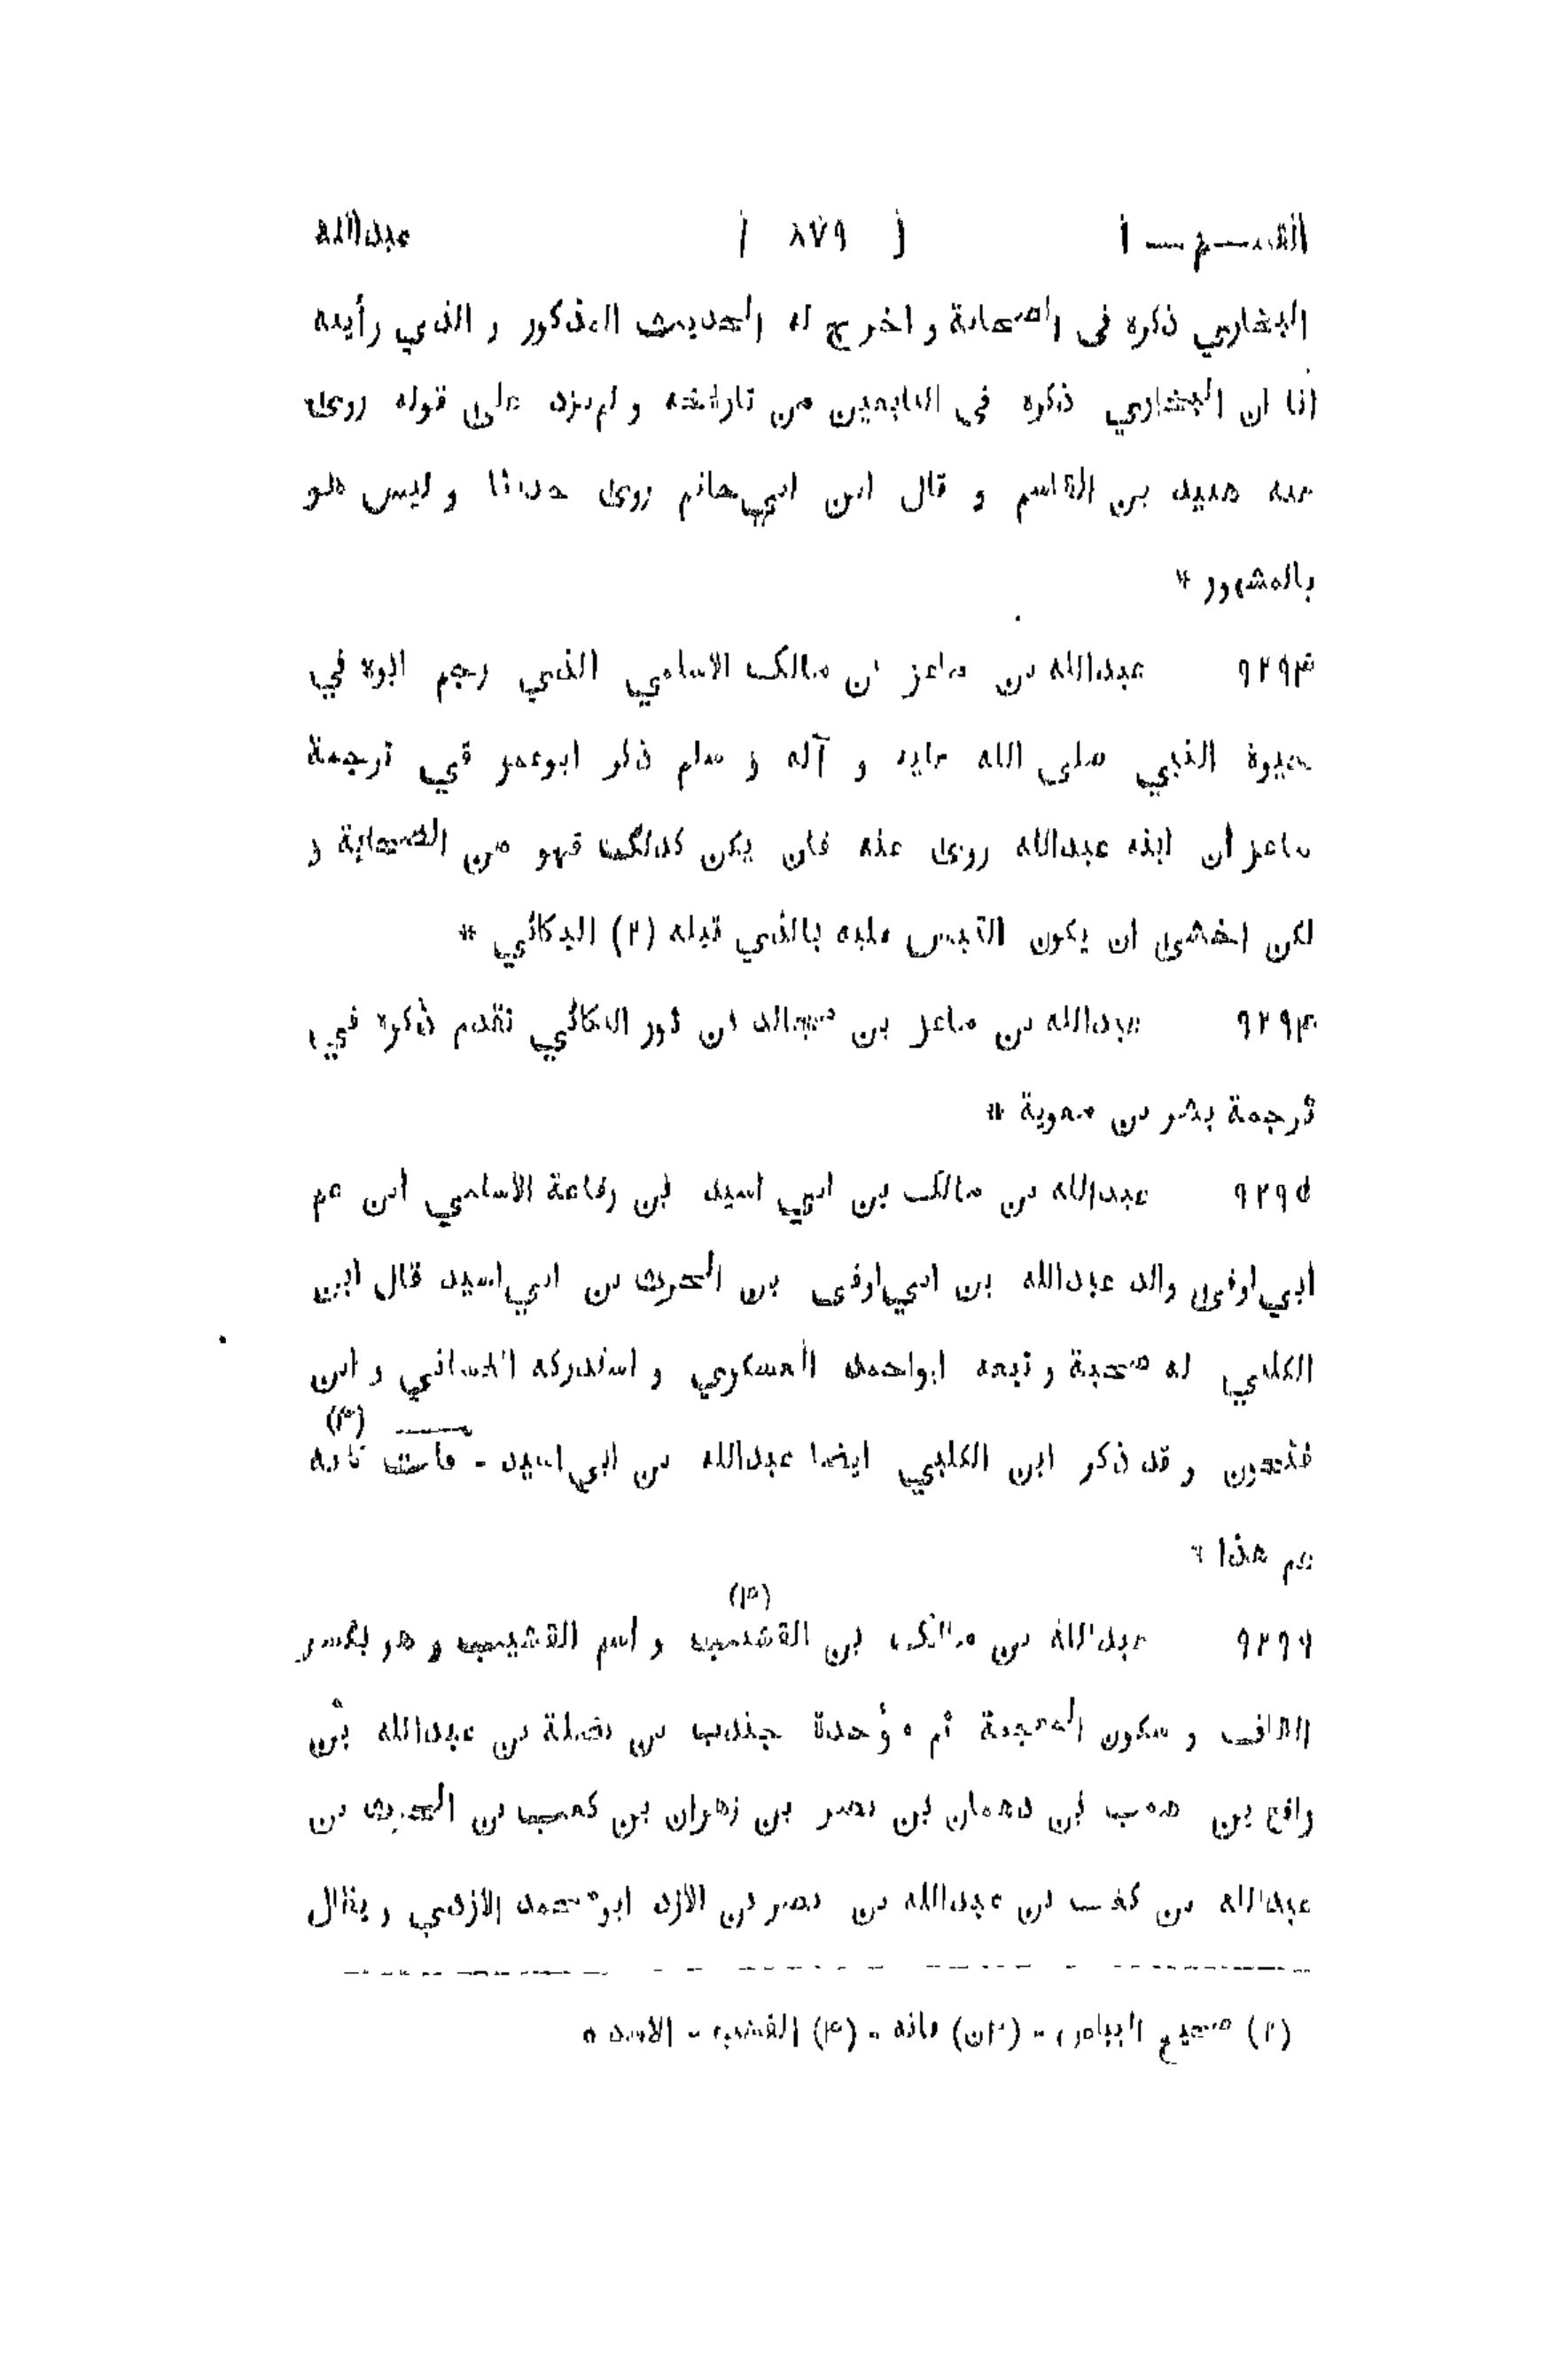 القســم ــ ١ [ ٨٧٩ ] عبدالله
البخاري ذكره فى الصحابة و اخرج له الحديث المذكور و الذي رأيته
انا ان البخاري ذكره في التابعين من تاريخه و لم يزد على قوله روى
عنه هنيد بن القاسم و قال ابن ابي حاتم روى حديثا و ليس هو
بالمشهور *
٩٢٩٣ عبدالله بن ماعز بن مالك الاسلمي الذي رجم ابوه في
حيوة النبي صلى الله عليه و آله و سلم ذكر ابوعمر في ترجمة
ماعز أن ابنه عبدالله روى عنه فان يكن كذلك فهو من الصحابة و
لكن اخشى ان يكون التبس عليه بالذي قبله (٢) البكائي *
٩٢٩٤ عبدالله بن ماعز بن مجالد بن ثور البكائي تقدم ذكره في
ترجمة بشر بن معوية *
٩٢٩٥ عبدالله بن مالك بن ابي اسيد بن رفاعة الاسلمي ابن عم
أبي اوفى والد عبدالله بن ابي اوفى بن الحرث بن ابي اسيد قال ابن
الكلبي له صحبة و تبعه ابواحمد العسكري و استدركه الغساني و ابن
(٣)
فتحون و قد ذكر ابن الكلبي ايضا عبدالله بن ابي اسيد - قلت
عم هذا *
(٤)
٩٢٩٦ عبدالله بن مالك بن القشب و اسم القشب و هو بكسر
القاف و سكون المعجمة ثم موحدة جندب بن نضلة بن عبدالله بن
رافع بن بن دهمان بن نصر بن زهران بن كعب بن الحرث بن
عبدالله بن كعب بن عبدالله بن نصر بن الازد ابو محمد الازدي و يقال
(٢) صحيح - (٣ن) فانه - (٤) القشب - الاسد *